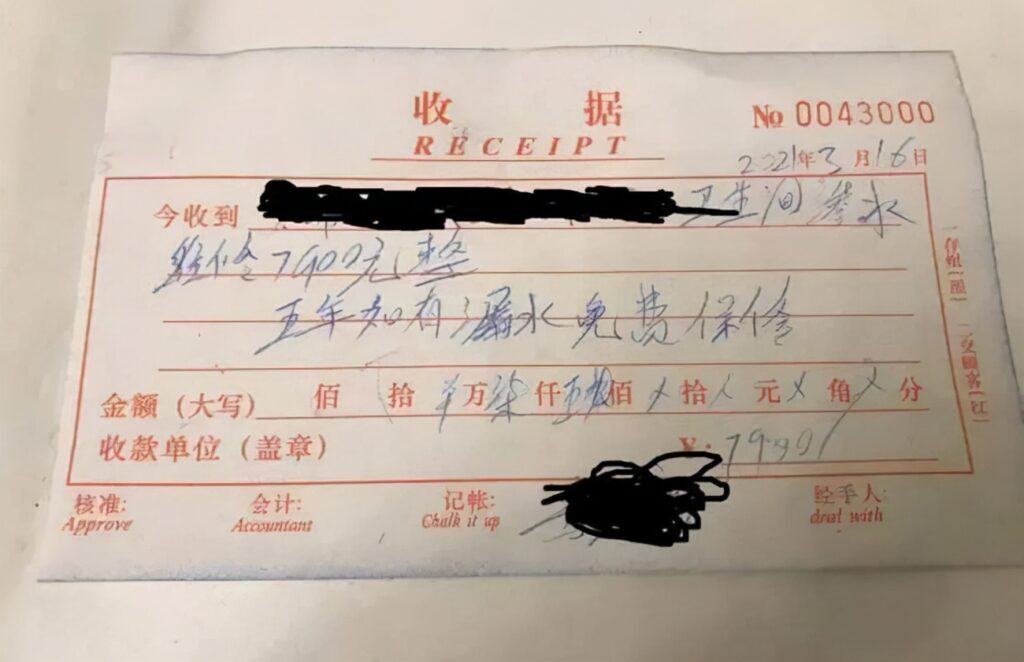 收据
RECEIPT
No 0043000
2021年3月16日
今收到 卫生间渗水
维修7900元整
五年如有漏水免费保修
金额（大写） 佰 拾 万柒仟 佰 ×拾 ×元×角×分
收款单位（盖章） ¥：7900
核准: 会计: 记帐: 经手人:
Approve Accountant Chalk it up deal with